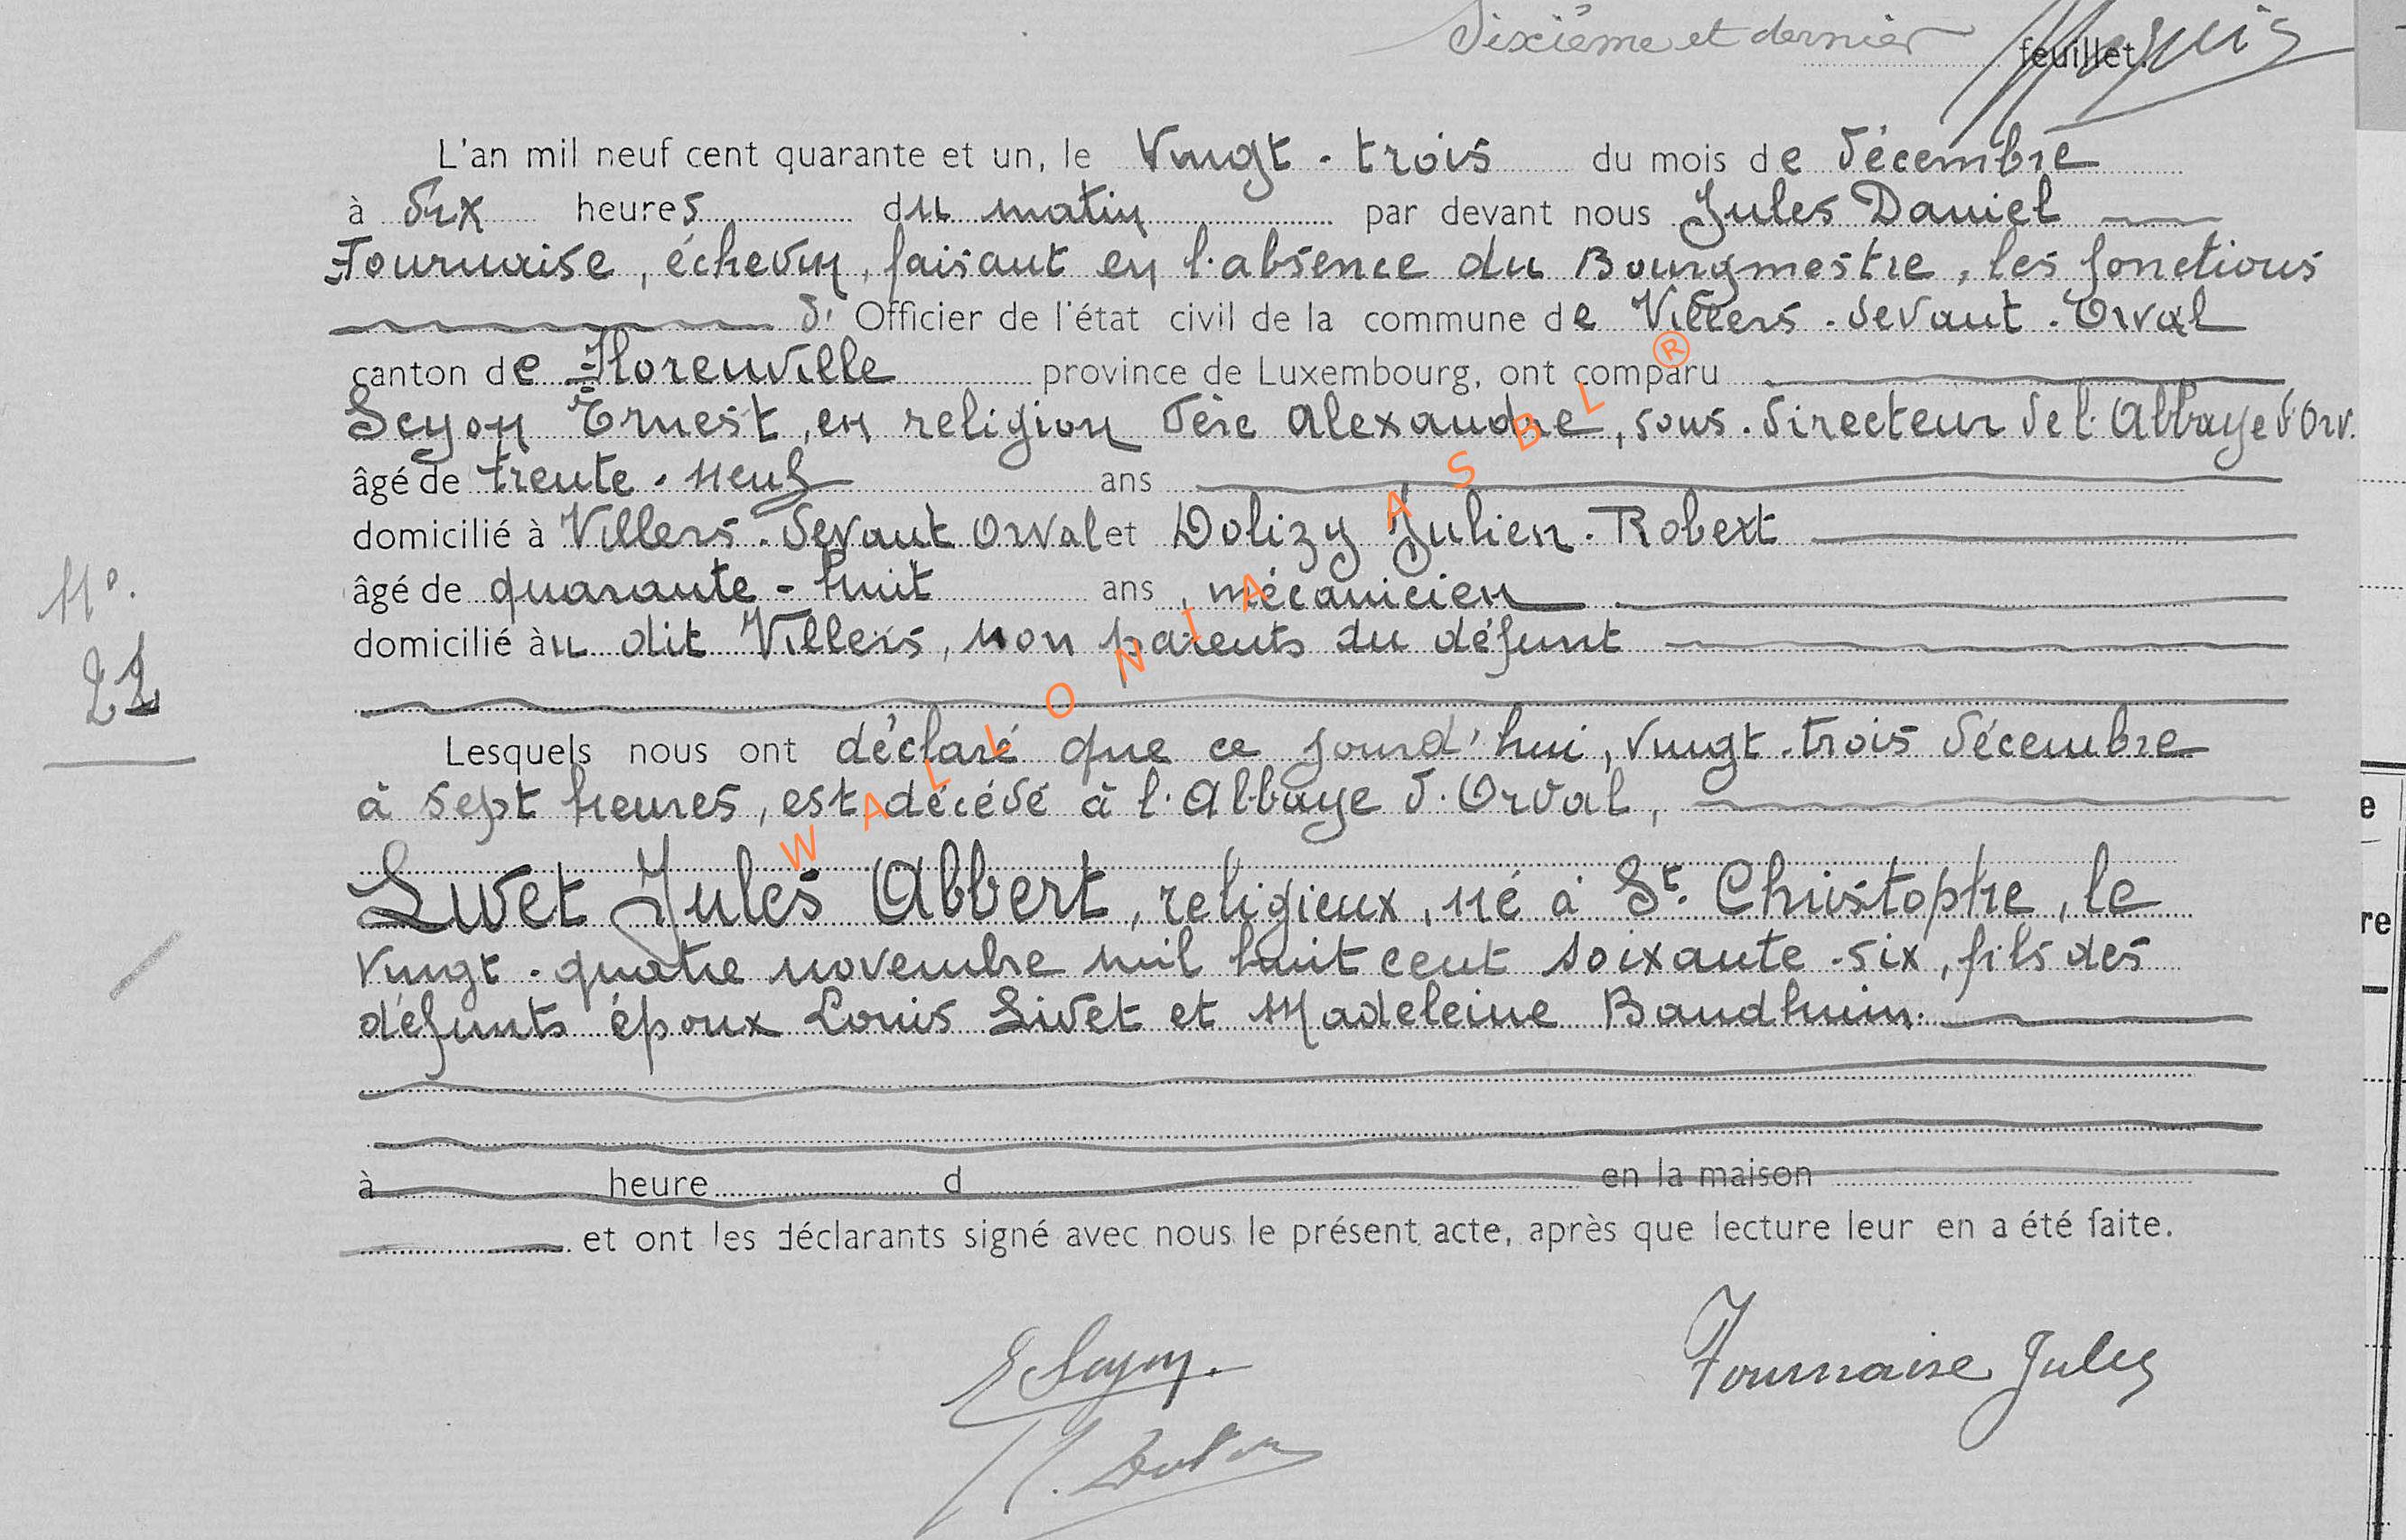 Sixième et dernier feuillet.
L'an mil neuf cent quarante et un, le Vingt-trois du mois de décembre
à dix heures du matin par devant nous Jules Daniel
Fournaise, échevin, faisant en l'absence du Bourgmestre, les fonctions
d' Officier de l'état civil de la commune de Villers-devant-Orval
canton de Florenville province de Luxembourg, ont comparu
Seyon Ernest, en religion Père Alexandre, sous-directeur de l'Abbaye d'Orv.
âgé de trente-neuf ans
domicilié à Villers-devant Orval et Dolizy Julien-Robert
âgé de quarante-huit ans, mécanicien
domicilié au dit Villers, non parents du défunt
N°
22
Lesquels nous ont déclaré que ce jourd'hui, vingt-trois décembre
à sept heures, est décédé à l'Abbaye d'Orval,
Livet Jules Albert, religieux, né à St. Christophe, le
vingt-quatre novembre mil huit cent soixante-six, fils des
défunts époux Louis Livet et Madeleine Baudhuin.
à heure d en la maison
et ont les déclarants signé avec nous le présent acte, après que lecture leur en a été faite.
E Seyon.
Fournaise Jules
WALLONIA ASBL ®